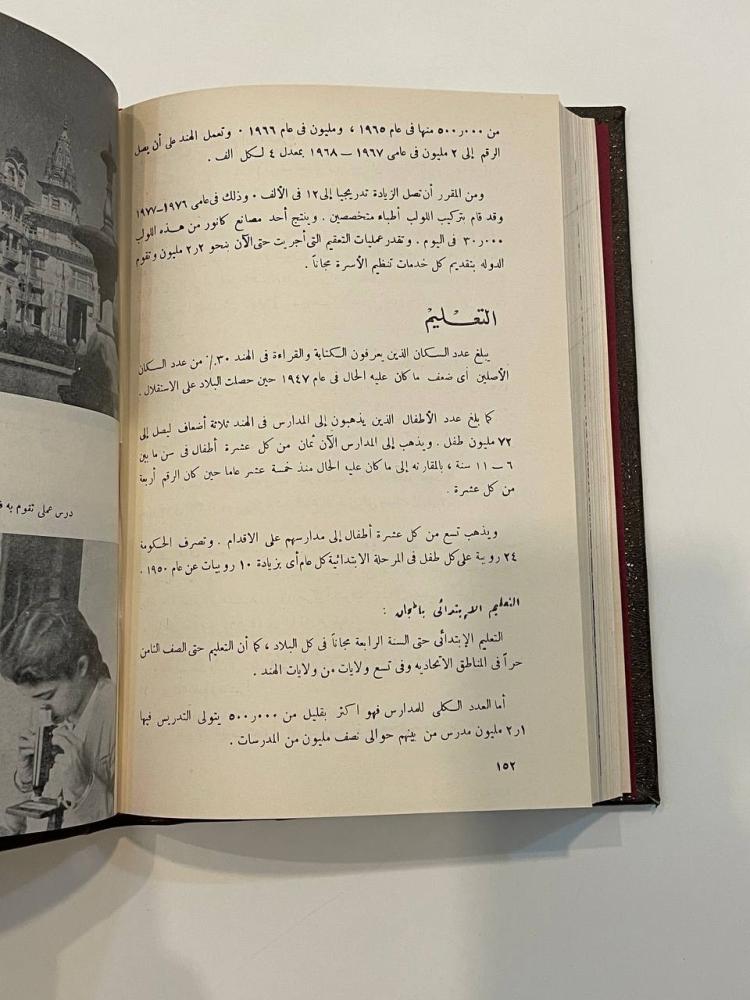 من ٥٠٠٫٠٠٠ منها فى عام ١٩٦٥ ، ومليون فى عام ١٩٦٦ . وتعمل الهند على أن يصل
الرقم إلى ٢ مليون فى عامى ١٩٦٧ — ١٩٦٨ بمعدل ٤ لكل الف .
ومن المقرر أن تصل الزيادة تدريجيا إلى ١٢ فى الألف . وذلك فى عامى ١٩٧٦-١٩٧٧
وقد قام بتركيب اللولب أطباء متخصصين . وينتج أحد مصانع كانبور من هذه اللولب
٣٠٫٠٠٠ فى اليوم . وتقدر عمليات التعقيم التى أجريت حتى الآن بنحو ٢٫٢ مليون وتقوم
الدوله بتقديم كل خدمات تنظيم الأسرة مجاناً .
التعليم
يبلغ عدد السكان الذين يعرفون الكتابة والقراءة فى الهند ٣٠٪ من عدد السكان
الأصلين أى ضعف ما كان عليه الحال فى عام ١٩٤٧ حين حصلت البلاد على الاستقلال .
كما بلغ عدد الأطفال الذين يذهبون إلى المدارس فى الهند ثلاثة أضعاف ليصل إلى
٧٢ مليون طفل . ويذهب إلى المدارس الآن ثمان من كل عشرة أطفال فى سن ما بين
٦ — ١١ سنة ، بالمقارنه إلى ما كان عليه الحال منذ خمسة عشر عاما حين كان الرقم أربعة
من كل عشرة .
ويذهب تسع من كل عشرة أطفال إلى مدارسهم على الاقدام . وتصرف الحكومة
٢٤ روبية على كل طفل فى المرحلة الابتدائية كل عام أى بزيادة ١٠ روبيات عن عام ١٩٥٠ .
التعليم الإبتدائى بالمجان :
التعليم الإبتدائى حتى السنة الرابعة مجاناً فى كل البلاد ، كما أن التعليم حتى الصف الثامن
حراً فى المناطق الاتحاديه وفى تسع ولايات من ولايات الهند .
أما العدد الكلى للمدارس فهو اكثر بقليل من ٥٠٠٫٠٠٠ يتولى التدريس فيها
٢٫١ مليون مدرس من بينهم حوالى نصف مليون من المدرسات .
١٥٢
درس عملى تقوم به